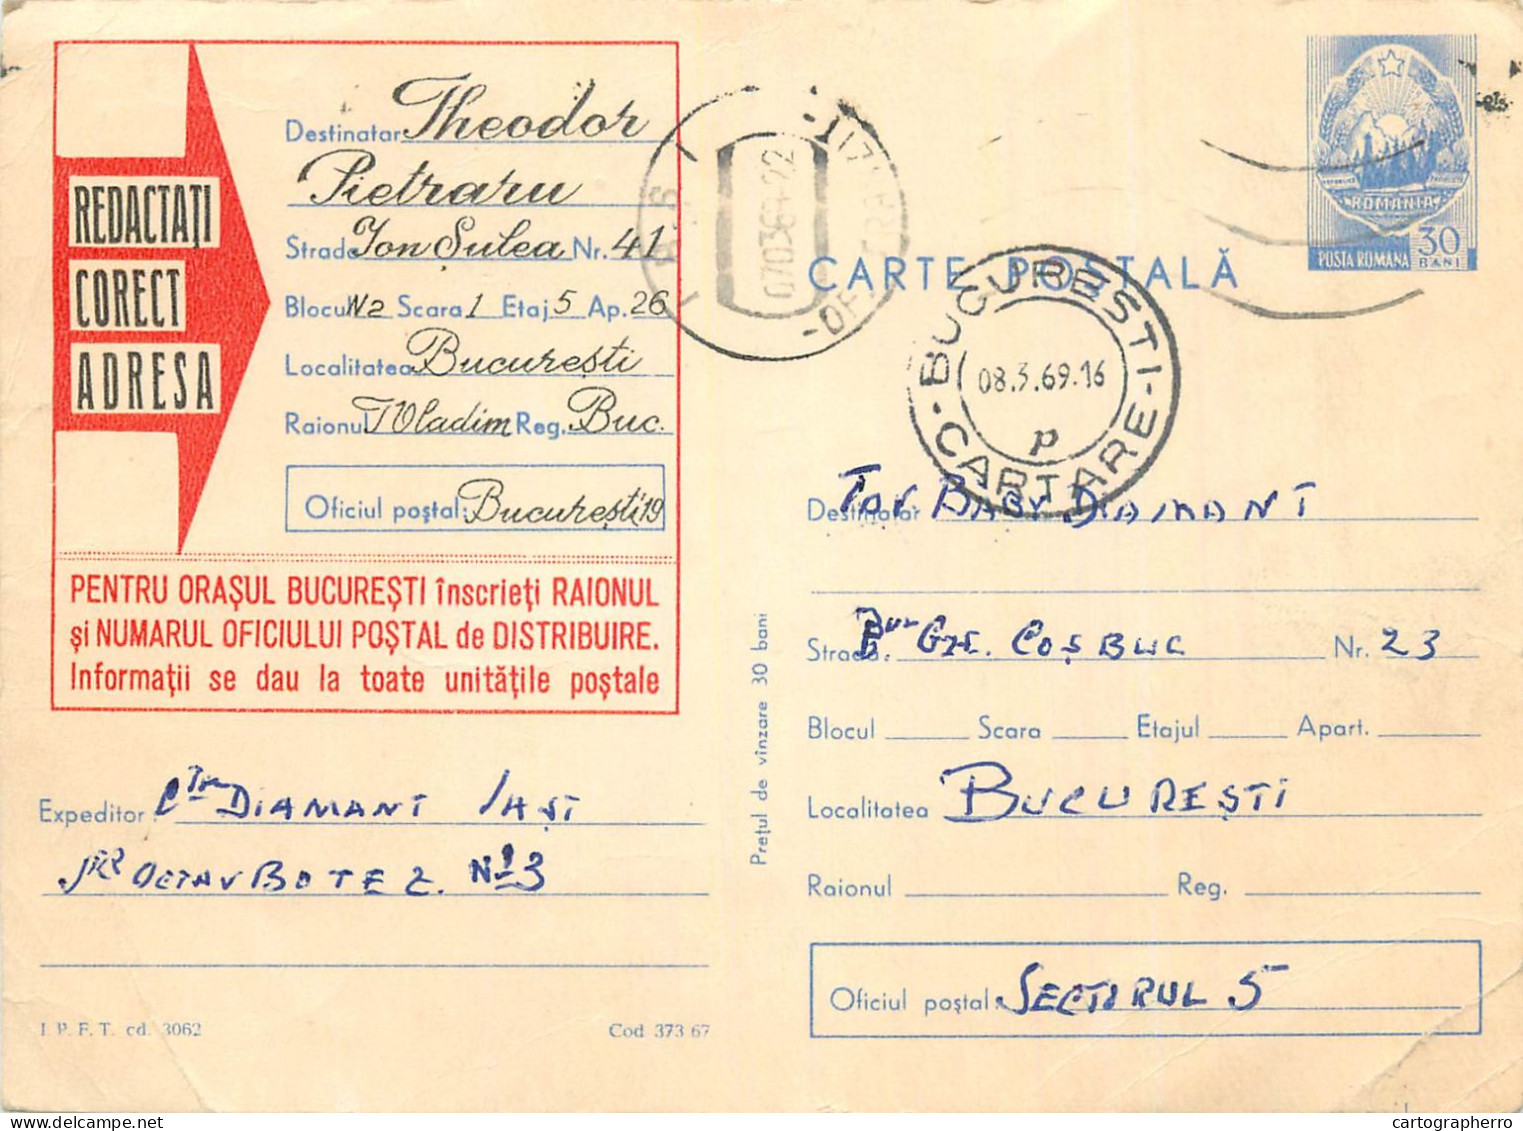 REDACTAȚI
CORECT
ADRESA
Destinatar Theodor
Pietraru
Strada Ion Șulea Nr. 41
Blocul N2 Scara 1 Etaj 5 Ap. 26
Localitatea București
Raionul T Vladim Reg. Buc.
Oficiul poștal: București 19
PENTRU ORAȘUL BUCUREȘTI înscrieți RAIONUL
și NUMARUL OFICIULUI POȘTAL de DISTRIBUIRE.
Informații se dau la toate unitățile poștale
Expeditor DIAMANT IAȘI
OCTAV BOTEZ No 3
I. P. F. T. cd. 3062
Cod 373 67
Prețul de vînzare 30 bani
IAȘI
070369-22
CARTE POȘTALĂ
ROMANIA
POSTA ROMANA 30
BANI
BUCUREȘTI
08.3.69.16
p
CARTARE
Destinatar Tov BABY DIAMANT
Strada GH. COȘBUC Nr. 23
Blocul Scara Etajul Apart.
Localitatea BUCUREȘTI
Raionul Reg.
Oficiul poștal: SECTORUL 5
cartographerro